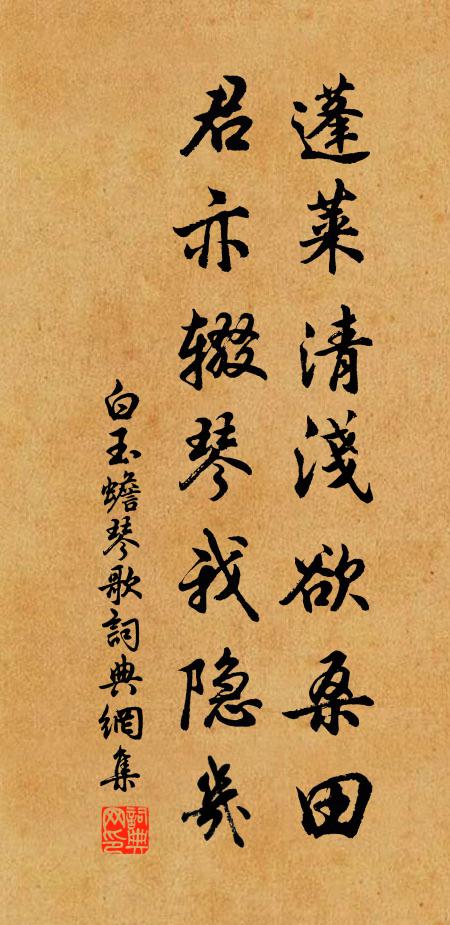 蓬莱清淺欲桑田
君亦辍琴我隐几
白玉蟾琴歌詞典網集
詞典网印